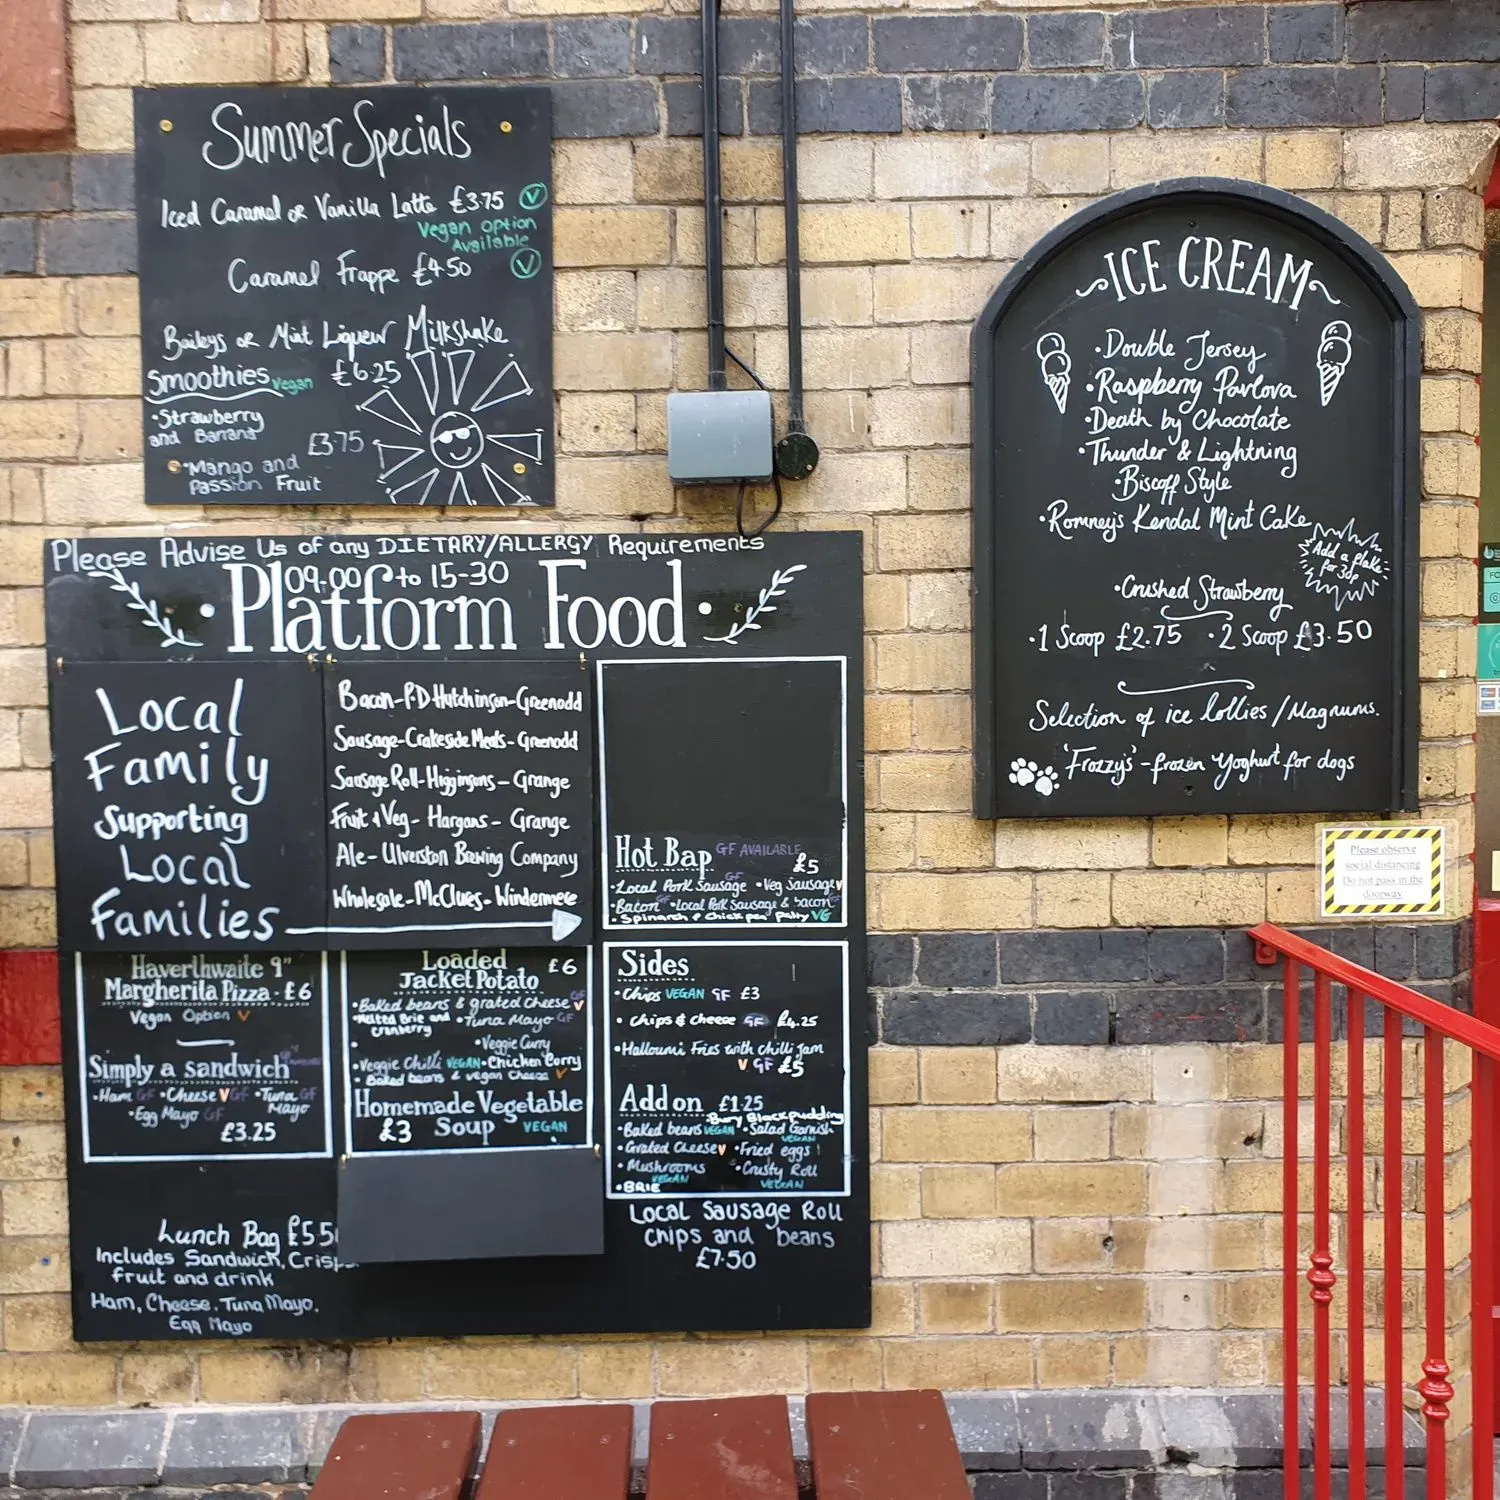 Summer Specials
Iced Caramel or Vanilla Latte £3.75 V
Vegan Option
Available
Caramel Frappe £4.50 V
Baileys or Mint Liqueur Milkshake
£6.25
Smoothies Vegan
•Strawberry
and Banana
£3.75
•Mango and
Passion Fruit
ICE CREAM
•Double Jersey
•Raspberry Pavlova
•Death by Chocolate
•Thunder & Lightning
•Biscoff Style
•Romney's Kendal Mint Cake
Add a flake
for 30p
•Crushed Strawberry
•1 Scoop £2.75 •2 Scoop £3.50
Selection of ice lollies / Magnums.
'Frozzy's' - frozen yoghurt for dogs
Please observe
social distancing
Do not pass in the
doorway
Please Advise Us of any DIETARY/ALLERGY Requirements
09-00 to 15-30
Platform Food
Local
Family
Supporting
Local
Families
Bacon-P.D Hutchinson-Greenodd
Sausage-Crakeside Meats-Greenodd
Sausage Roll-Higginsons-Grange
Fruit & Veg-Hargans-Grange
Ale-Ulverston Brewing Company
Wholesale-McClures-Windermere
Hot Bap GF AVAILABLE
£5
•Local Pork Sausage GF •Veg Sausage V
•Bacon GF •Local Pork Sausage & bacon GF
•Spinarch & Chickpea patty VG
Haverthwaite 9"
Margherita Pizza - £6
Vegan Option V
Simply a sandwich
•Ham GF •Cheese V GF •Tuna GF
Mayo
•Egg Mayo GF
£3.25
Loaded
Jacket Potato £6
•Baked beans & grated cheese V GF
•Melted Brie and
cranberry
•Tuna Mayo GF
•Veggie Curry
•Veggie Chilli VEGAN •Chicken Curry
•Baked beans & vegan cheese V
Homemade Vegetable
£3 Soup VEGAN
Sides
•Chips VEGAN GF £3
•Chips & cheese GF £4.25
•Halloumi Fries with chilli jam
V GF £5
Add on £1.25
Bury Black pudding
•Baked beans VEGAN •Salad Garnish
VEGAN
•Grated Cheese V •Fried eggs
•Mushrooms •Crusty Roll
VEGAN VEGAN
•BRIE
Local Sausage Roll
chips and beans
£7.50
Lunch Bag £5.5
Includes Sandwich, Crisps
fruit and drink
Ham, Cheese, Tuna Mayo,
Egg Mayo